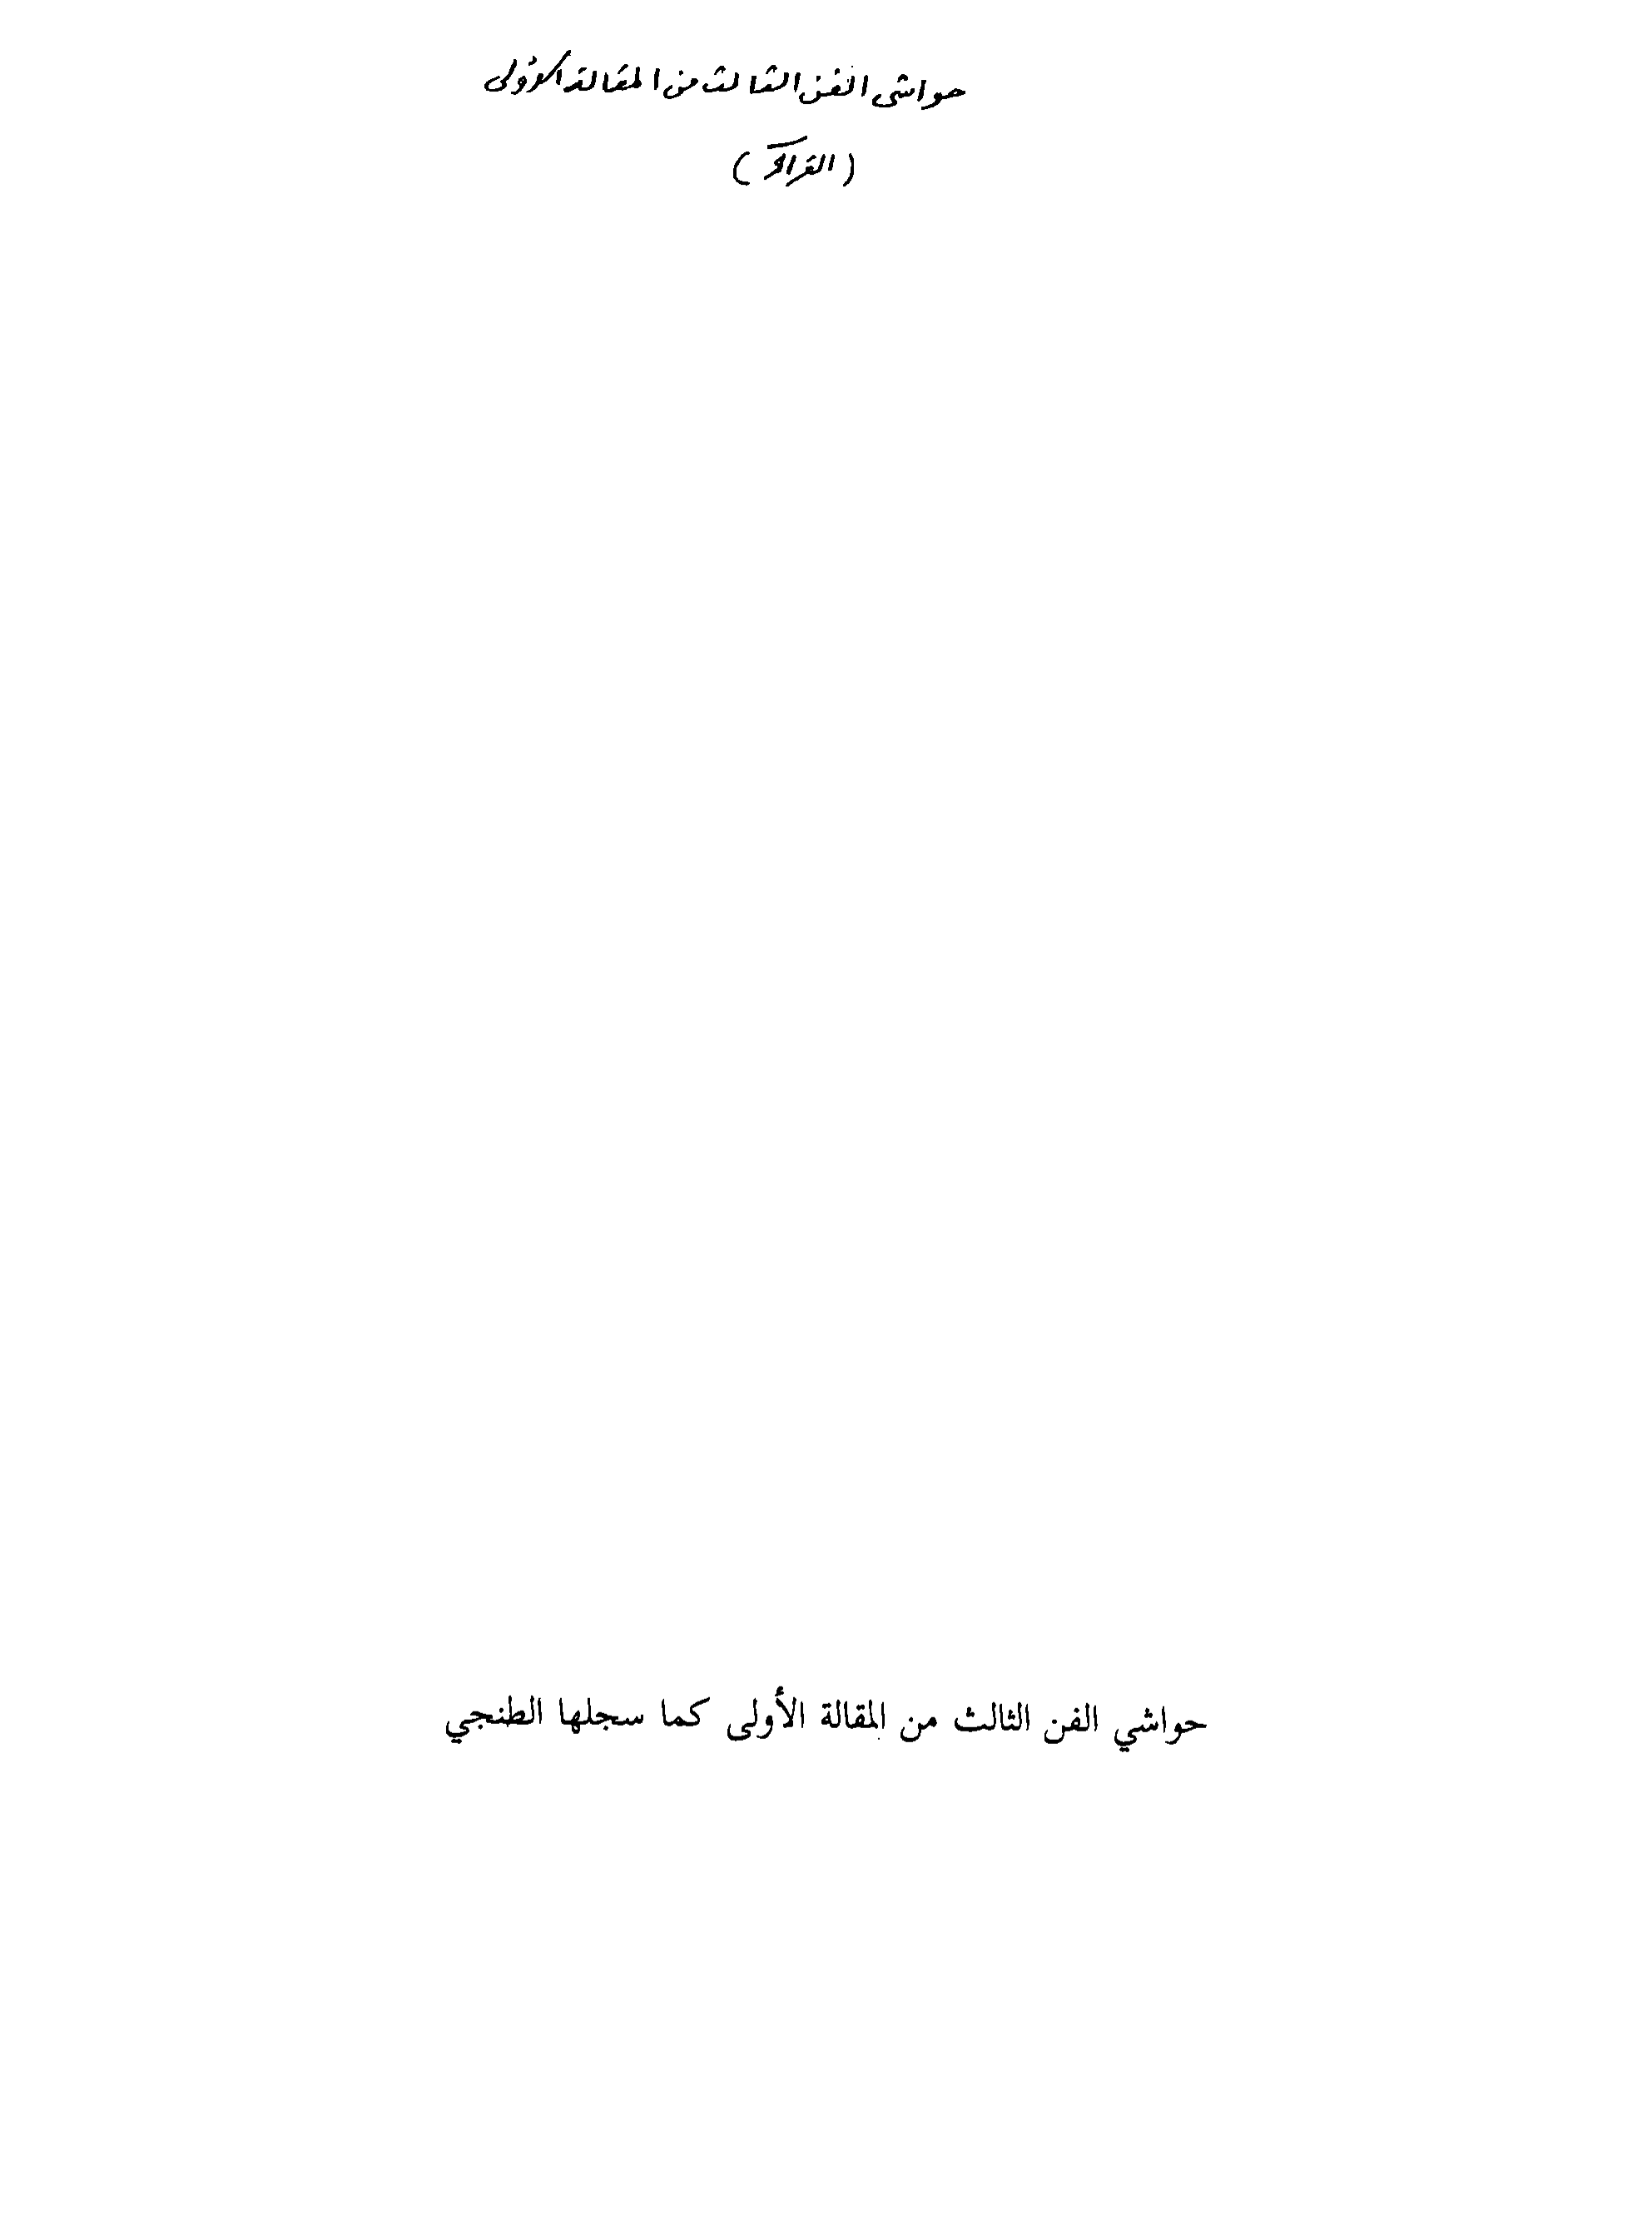 حواشى الفن الثالث من المقالة الأولى
(القرآن)
حواشي الفن الثالث من المقالة الأولى كما سجلها الطنجي